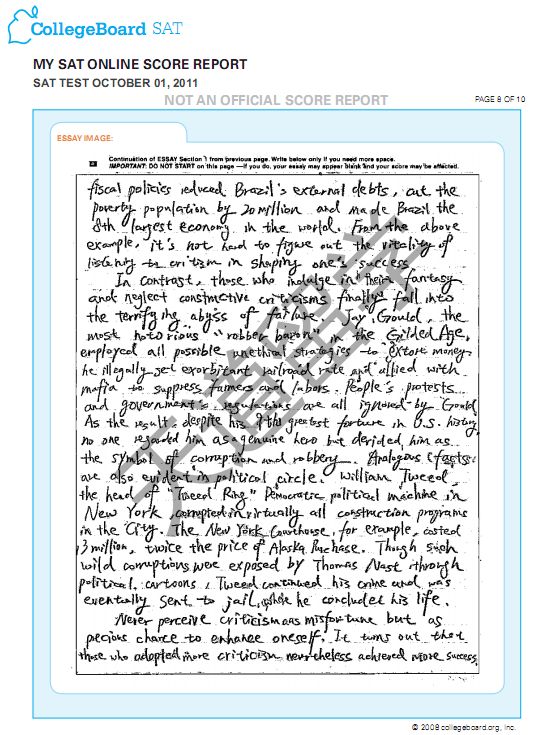 CollegeBoard SAT
MY SAT ONLINE SCORE REPORT
SAT TEST OCTOBER 01, 2011
NOT AN OFFICIAL SCORE REPORT
PAGE 8 OF 10
ESSAY IMAGE:
Continuation of ESSAY Section 1 from previous page. Write below only if you need more space.
IMPORTANT: DO NOT START on this page—if you do, your essay may appear blank and your score may be affected.
fiscal policies reduced Brazil's external debts, cut the
poverty population by 20 million and made Brazil the
8th largest economy in the world. From the above
example, it's not hard to figure out the vitality of
listening to critism in shaping one's success.
In contrast, those who indulge in their fantasy
and neglect constructive criticisms finally fall into
the terrifying abyss of failure. Jay Gould, the
most notorious "robber baron" in the Gilded Age,
employed all possible unethical strategies to extort money.
he illegally set exorbitant railroad rate and allied with
mafia to suppress farmers and labors. People's protests
and government's regulations are all ignored by Gould.
As the result, despite his the greatest fortune in U.S. history,
no one regarded him as a genuine hero but derided him as
the symbol of corruption and robbery. Analogous facts
are also evident in political circle. William Tweed,
the head of "Tweed Ring" Democratic political machine in
New York, corrupted in virtually all construction programs
in the City. The New York Courthouse, for example, costed
13 million, twice the price of Alaska Purchase. Though such
wild corruptions were exposed by Thomas Nast through
political cartoons, Tweed continued his crime and was
eventually sent to jail, where he concluded his life.
Never perceive criticism as misfortune but as
precious chance to enhance oneself. It turns out that
those who adopted more criticism nevertheless achieved more success.
天道留学
© 2008 collegeboard.org, Inc.